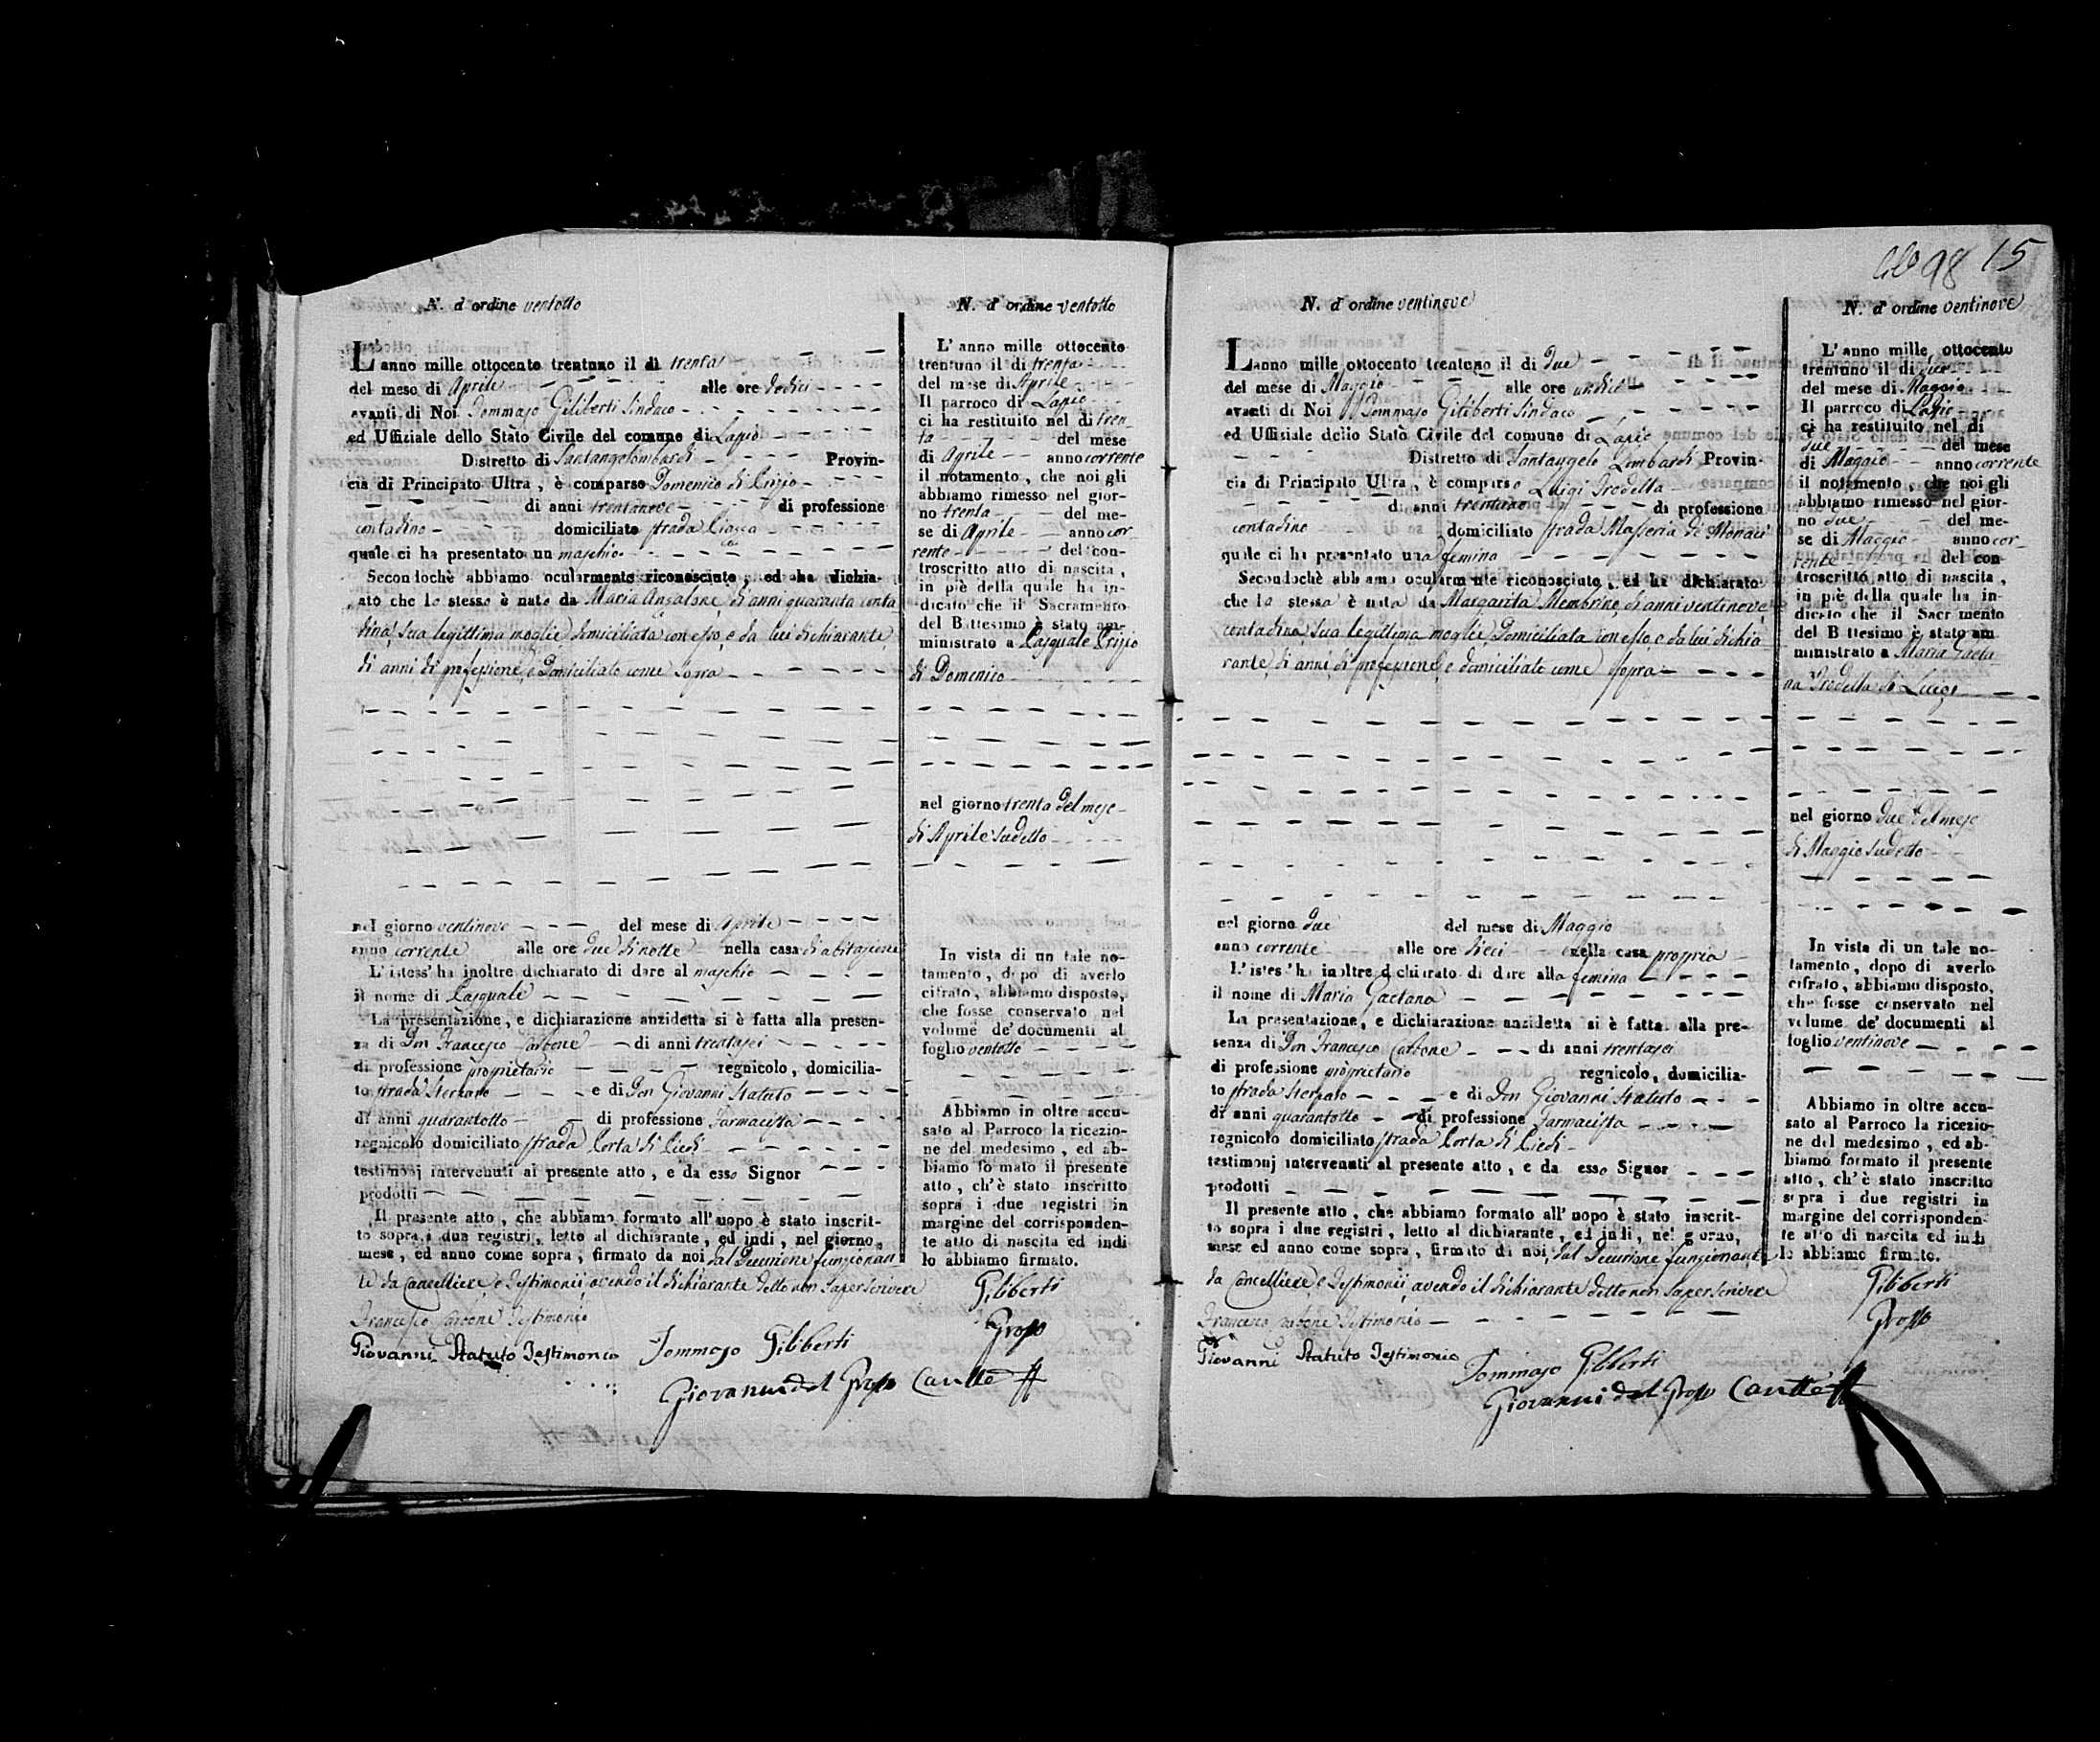 N. d' ordine ventotto
L'anno mille ottocento trentuno il di trenta
del mese di Aprile alle ore dodici
avanti di Noi Tommaso Giliberti Sindaco
ed Uffiziale dello Stato Civile del comune di Lapio
Distretto di Santangelolombardi Provin-
cia di Principato Ultra, è comparso Domenico di Crizio
di anni trentanove di professione
contadino domiciliato strada
quale ci ha presentato un maschio
Secondochè abbiamo ocularmente riconosciuto, ed ha dichia-
rato che lo stesso è nato da Maria Anzalone di anni quaranta conta
dina sua legittima moglie domiciliata con esso, e da lui dichiarante
di anni, di professione, e Domiciliato come sopra
nel giorno ventinove del mese di Aprile
anno corrente alle ore due di notte nella casa di abitazione
L'istess' ha inoltre dichiarato di dare al maschio
il nome di Pasquale
La presentazione, e dichiarazione anzidetta si è fatta alla presen-
za di Don Francesco Carbone di anni trentasei
di professione proprietario regnicolo, domicilia-
to strada Sterparo e di Don Giovanni Statuto
di anni quarantotto di professione Farmacista
regnicolo domiciliato strada Porta di Piedi
testimonj intervenuti al presente atto, e da esso Signor
prodotti
Il presente atto, che abbiamo formato all' uopo è stato inscrit-
to sopra i due registri, letto al dichiarante, ed indi, nel giorno,
mese, ed anno come sopra, firmato da noi, dal Decurione funzionan
te da Cancelliere, e Testimonii, avendo il dichiarante detto non saper scrivere
Francesco Carbone Testimonio
Giovanni Statuto Testimonio Tommaso Giliberti
Giovanni del Grosso Canc.re ff
N. d' ordine ventotto
L' anno mille ottocento
trentuno il di trenta
del mese di Aprile
Il parroco di Lapio
ci ha restituito nel di tren
ta del mese
di Aprile anno corrente
il notamento, che noi gli
abbiamo rimesso nel gior-
no trenta del me-
se di Aprile anno cor-
rente del con-
troscritto atto di nascita,
in piè della quale ha in-
dicato che il Sacramento
del Battesimo è stato am-
ministrato a Pasquale Crizio
di Domenico
nel giorno trenta del mese
di Aprile sudetto
In vista di un tale no-
tamento, dopo di averlo
cifrato, abbiamo disposto,
che fosse conservato nel
volume de' documenti al
foglio ventotto
Abbiamo in oltre accu-
sato al Parroco la ricezio-
ne del medesimo, ed ab-
biamo formato il presente
atto, ch' è stato inscritto
sopra i due registri in
margine del corrisponden-
te atto di nascita ed indi
lo abbiamo firmato.
Giliberti
Grosso
98 15
N. d' ordine ventinove
L'anno mille ottocento trentuno il di due
del mese di Maggio alle ore undici
avanti di Noi Tommaso Giliberti Sindaco
ed Uffiziale dello Stato Civile del comune di Lapio
Distretto di Santangelo Lombardi Provin-
cia di Principato Ultra, è comparso Luigi Trodella
di anni trentuno di professione
contadino domiciliato strada Masseria di Monaci
quale ci ha presentato una femina
Secondochè abbiamo ocularmente riconosciuto, ed ha dichiarato
che la stessa è nata da Margarita Membrino, di anni ventinove
contadina, sua legittima moglie, Domiciliata con esso, e da lui dichia
rante, di anni, di professione, e domiciliato come sopra
nel giorno due del mese di Maggio
anno corrente alle ore dieci nella casa propria
L'istess' ha inoltre dichiarato di dare alla femina
il nome di Maria Gaetana
La presentazione, e dichiarazione anzidetta si è fatta alla pre-
senza di Don Francesco Carbone di anni trentasei
di professione proprietario regnicolo, domicilia-
to strada Sterparo e di Don Giovanni Statuto
di anni quarantotto di professione Farmacista
regnicolo domiciliato strada Porta di Piedi
testimonj intervenuti al presente atto, e da esso Signor
prodotti
Il presente atto, che abbiamo formato all' uopo è stato inscrit-
to sopra i due registri, letto al dichiarante, ed indi, nel giorno,
mese ed anno come sopra, firmato da noi, dal Decurione funzionante
da Cancelliere, e Testimonii, avendo il dichiarante detto non saper scrivere
Francesco Carbone Testimonio
Giovanni Statuto Testimonio Tommaso Giliberti
Giovanni del Grosso Canc.re ff
N. d' ordine ventinove
L' anno mille ottocento
trentuno il di due
del mese di Maggio
Il parroco di Lapio
ci ha restituito nel di
due del mese
di Maggio anno corrente
il notamento, che noi gli
abbiamo rimesso nel gior-
no due del me-
se di Maggio anno cor-
rente del con
troscritto atto di nascita,
in piè della quale ha in-
dicato che il Sacramento
del Battesimo è stato am
ministrato a Maria Gaeta-
na Trodella di Luigi
nel giorno due del mese
di Maggio sudetto
In vista di un tale no-
tamento, dopo di averlo
cifrato, abbiamo disposto,
che fosse conservato nel
volume de' documenti al
foglio ventinove
Abbiamo in oltre accu-
sato al Parroco la ricezio-
ne del medesimo, ed ab-
biamo formato il presente
atto, ch' è stato inscritto
sopra i due registri in
margine del corrisponden-
te atto di nascita ed indi
lo abbiamo firmato.
Giliberti
Grosso